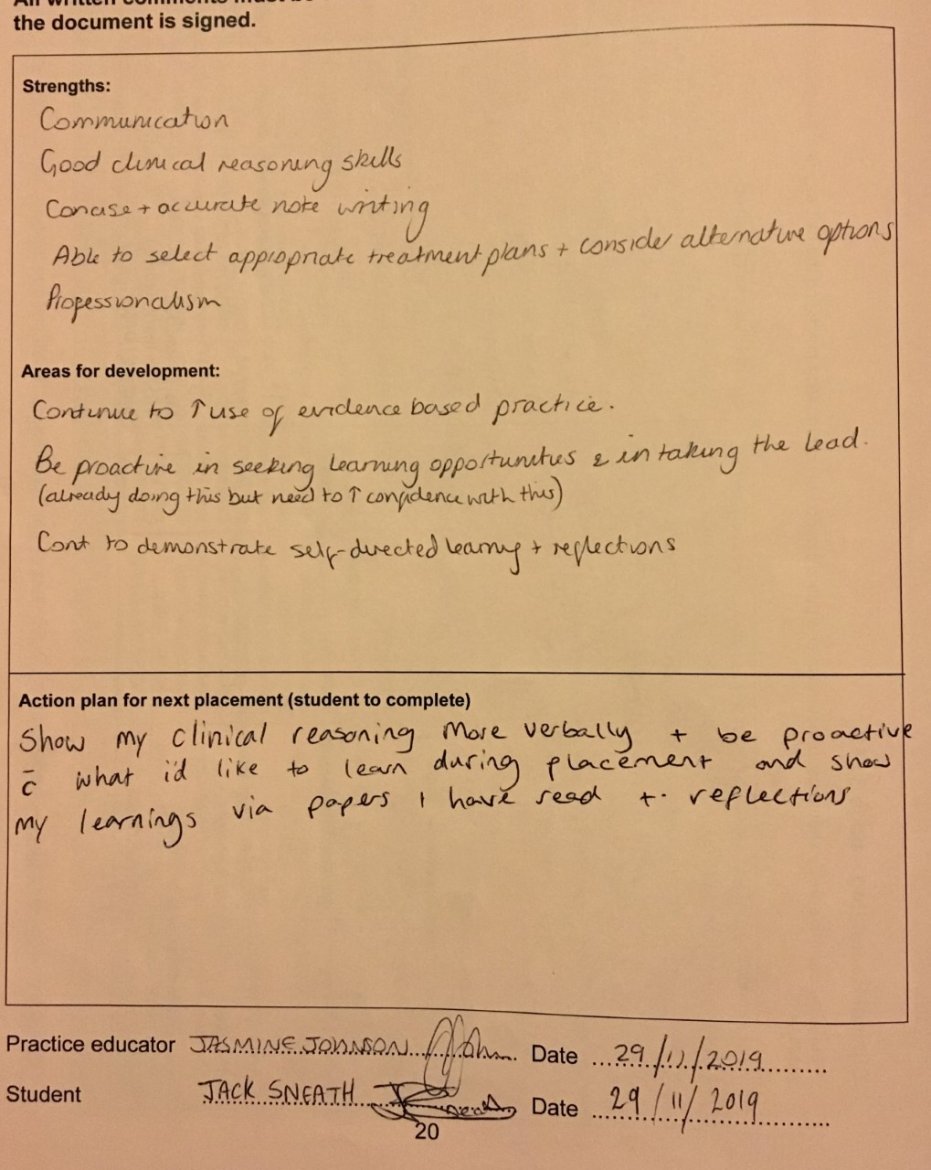 the document is signed.
Strengths:
Communication
Good clinical reasoning skills
Concise + accurate note writing
Able to select appropriate treatment plans + consider alternative options
Professionalism
Areas for development:
Continue to ↑ use of evidence based practice.
Be proactive in seeking learning opportunities & in taking the lead.
(already doing this but need to ↑ confidence with this)
Cont to demonstrate self-directed learning + reflections
Action plan for next placement (student to complete)
Show my clinical reasoning more verbally + be proactive
c̄ what i'd like to learn during placement and show
my learnings via papers I have read + reflections
Practice educator JASMINE JOHNSON Date 29/11/2019
Student JACK SNEATH Date 29/11/2019
20